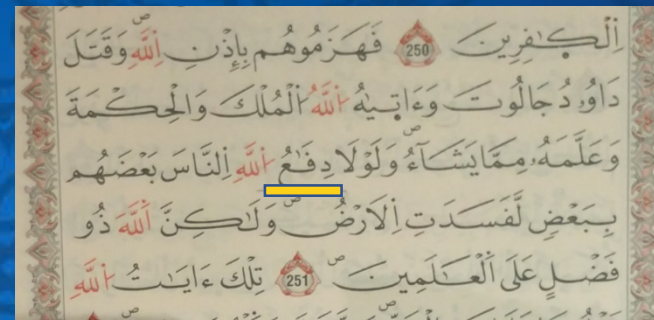 اِ۬لْكٰ۪فِرِينَ 250 فَهَزَمُوهُم بِإِذْنِ اِ۬للَّهِۖ وَقَتَلَ
دَاوُۥدُ جَالُوتَ وَءَات۪يٰهُ اُ۬للَّهُ اُ۬لْمُلْكَ وَالْحِكْمَةَ
وَعَلَّمَهُۥ مِمَّا يَشَآءُۖ وَلَوْلَا دِفَٰعُ اُ۬للَّهِ اِ۬لنَّاسَ بَعْضَهُم
بِبَعْضٖ لَّفَسَدَتِ اِ۬لَارْضُۖ وَلَٰكِنَّ اَ۬للَّهَ ذُو
فَضْلٍ عَلَى اَ۬لْعَٰلَمِينَۖ 251 تِلْكَ ءَايَٰتُ اُ۬للَّهِ